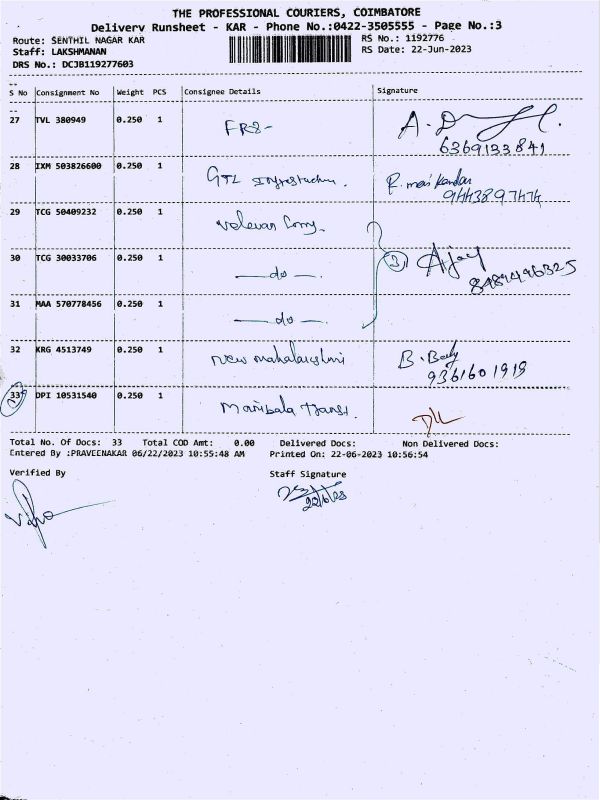 THE PROFESSIONAL COURIERS, COIMBATORE
Delivery Runsheet - KAR - Phone No.:0422-3505555 - Page No.:3
Route: SENTHIL NAGAR KAR RS No.: 1192776
Staff: LAKSHMANAN RS Date: 22-Jun-2023
DRS No.: DCJB119277603
S No Consignment No Weight PCS Consignee Details Signature
27 TVL 380949 0.250 1
6369133841
28 IXM 503826600 0.250 1 GTL R. mani kandan
9443897474
29 TCG 50409232 0.250 1
30 TCG 30033706 0.250 1 —do—. 3 Ajay
8489496325
31 MAA 570778456 0.250 1 —do—.
32 KRG 4513749 0.250 1 New mahalakshmi
9361601919
33 DPI 10531540 0.250 1
Total No. Of Docs: 33 Total COD Amt: 0.00 Delivered Docs: Non Delivered Docs:
Entered By :PRAVEENAKAR 06/22/2023 10:55:48 AM Printed On: 22-06-2023 10:56:54
Verified By Staff Signature
22/6/23